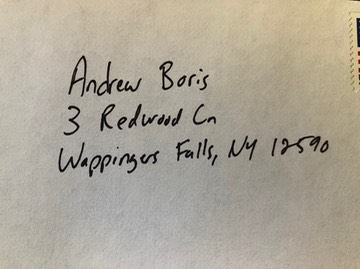 Andrew Boris
3 Redwood Ln
Wappingers Falls, NY 12590